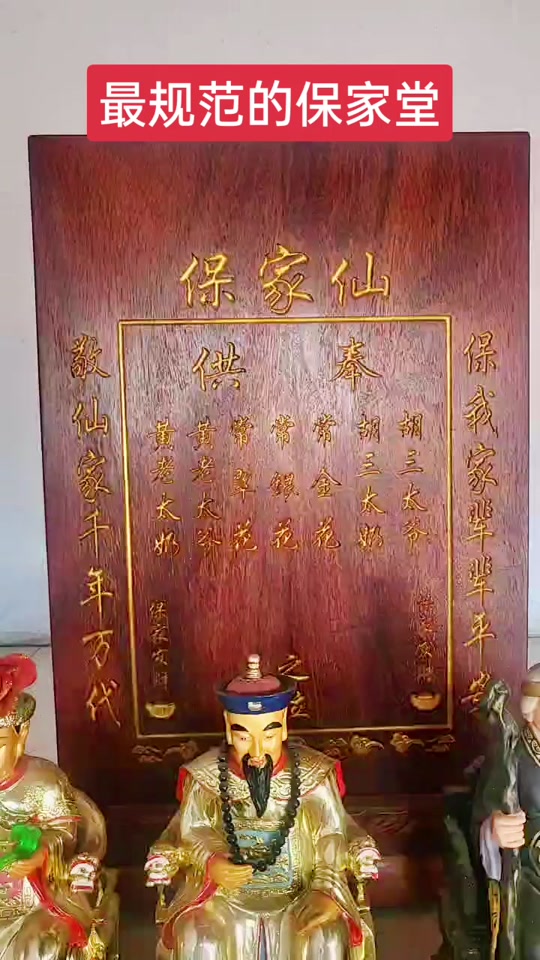 最规范的保家堂
保家仙
供奉
保我家辈辈平
敬仙家千年万代
胡三太爷
胡三太奶
常金花
常银花
常翠花
黄老太爷
黄老太奶
之